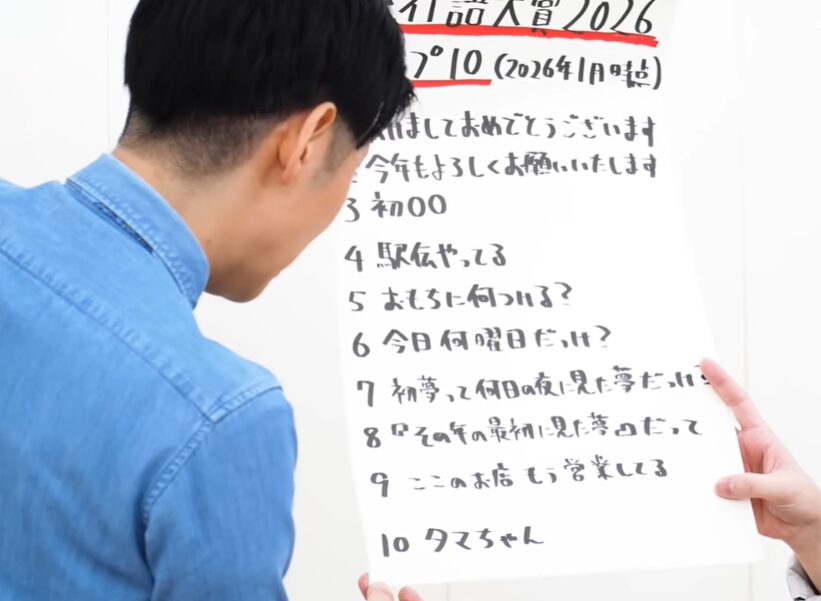 行語大賞2026
プ10(2026年1月時点)
けましておめでとうございます
今年もよろしくお願いいたします
3 初〇〇
4 駅伝やってる
5 おもちに何つける?
6 今日何曜日だっけ?
7 初夢って何日の夜に見た夢だっけ?
8 「その年の最初に見た夢」だって
9 ここのお店もう営業してる
10 タマちゃん